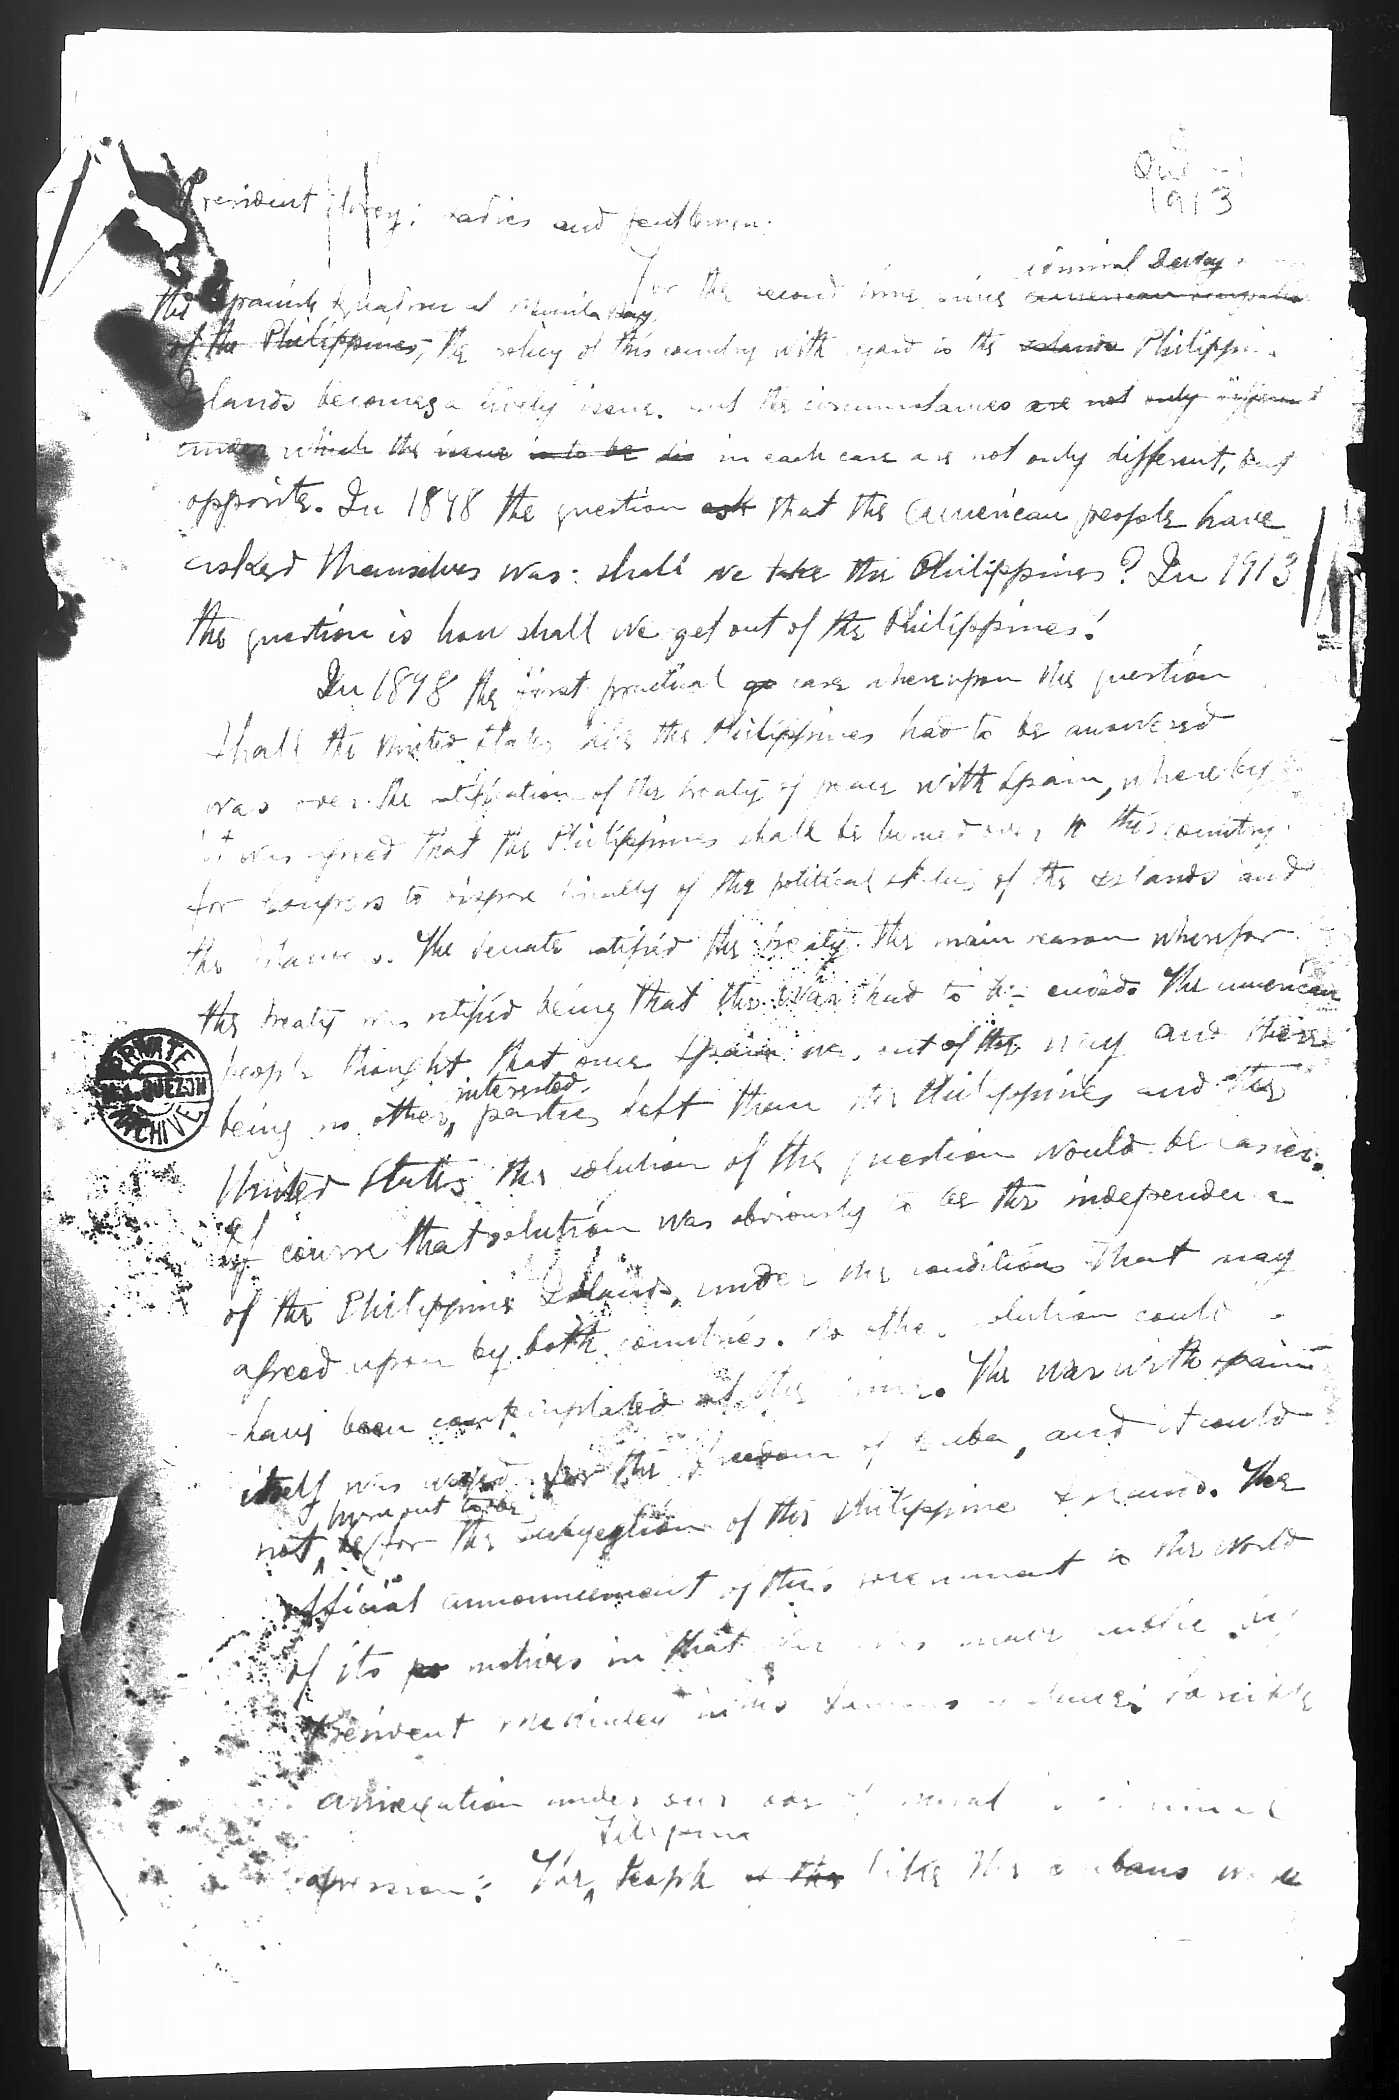 1913
President : Ladies and Gentlemen:
Admiral Dewey
For the second time since ~~American occupation~~
the Spanish Squadron at Manila Bay,
~~of the Philippines~~, the policy of this country with regard to the ~~Islands~~ Philippine
Islands becomes a lively issue. But the circumstances ~~are not only different~~
under which the issue ~~is to be dis~~ in each case are not only different, but
opposite. In 1898 the question ~~ask~~ that the American people have
asked themselves was: shall we take the Philippines? In 1913
the question is how shall we get out of the Philippines?
In 1898 the first practical ~~qe~~ case whereupon the question
shall the United States take the Philippines had to be answered
was over the ratification of the treaty of peace with Spain, whereby
it was agreed that the Philippines shall be turned over to this country
for Congress to dispose finally of the political status of the Islands and
the Islanders. The Senate ratified the treaty the main reason wherefor
the treaty was ratified being that the war had to be ended. The American
people thought that once Spain was out of the way and there
interested
being no other parties left than the Philippines and the
United States the solution of the question would be easier.
Of course that solution was obviously to be the independence
of the Philippine Islands, under the conditions that may
agreed upon by both countries. No other solution could
have been contemplated at the time. The war with Spain
itself was waged for the freedom of Cuba, and it could
turn out to be
not ~~be~~ for the subjection of the Philippine Islands. The
official announcement of this government to the world
of its ~~po~~ motives in that war was made public by
President McKinley in his famous sentence: Forcible
annexation under our code of moral is criminal
Filipino
aggression: The People ~~of the~~ like the Cubans were
PRIVATE
QUEZON
ARCHIVE